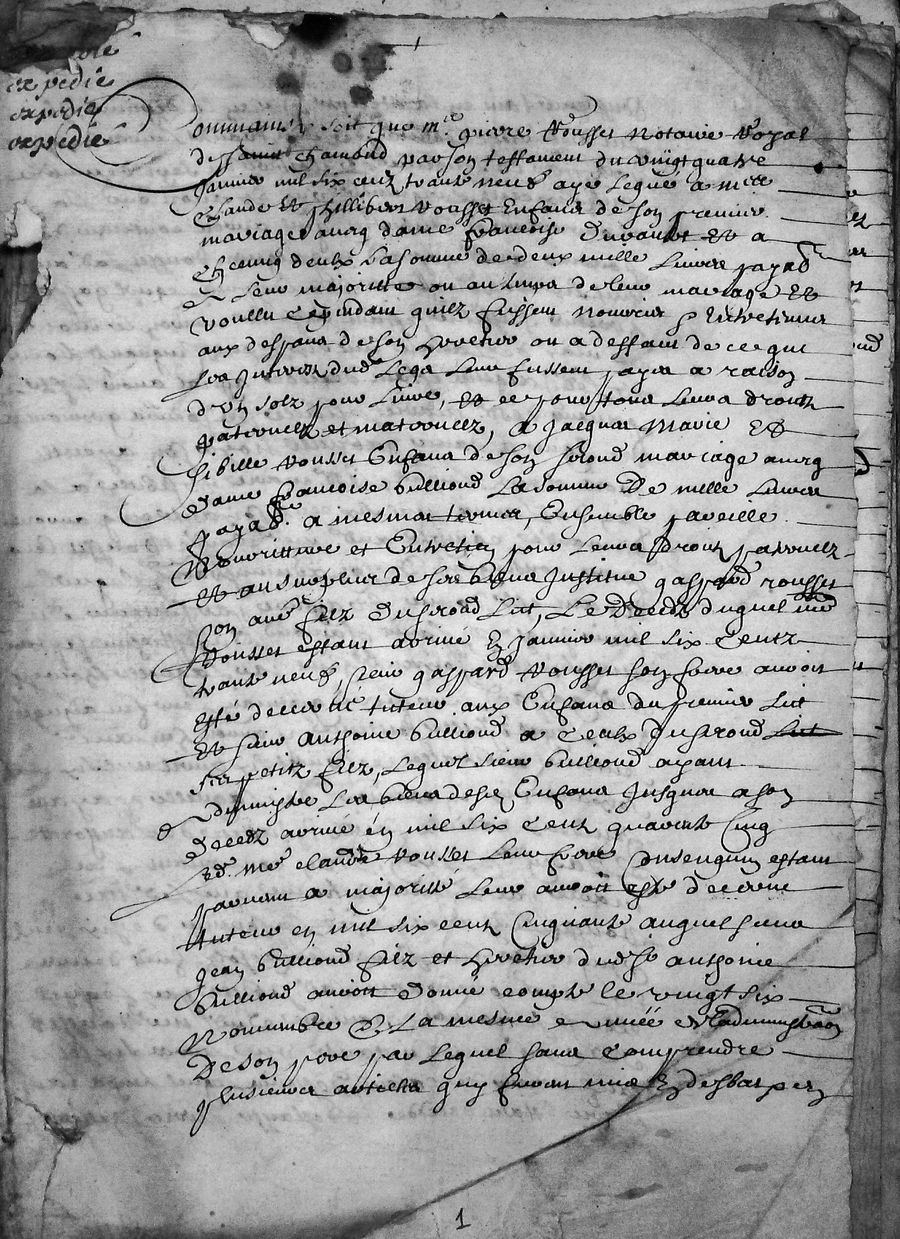 expedié
expedié
expedié
Comme ainsy soit que me pierre Rousset Notaire Royal
de Saint Chamond par son testament du vingt quatre
Janvier mil six cent trante neuf aye legué a mre
Claude et phillibert Rousset Enfans de son premier
mariage avecq dame francoise Durant et a
chacung deulx la somme de deux mille Livres payab
a Leur majoritte ou au temps de leur mariage et
voullu cependant quilz fussent nourris & Entretenus
aux despans de son heretier ou a deffaut de ce que
les Interestz dud Lega Leur fussent payes a raison
d'un solz pour Livre, et ce pour tous Leurs droitz
paternelz et maternelz, a Jacques Marie et
Sibille Rousset Enfans de son second mariage avecq
dame francoise bulliond La somme De mille Livres
payab. a mesmes termes, Ensemble pareille
Nourritture et Entretien pour Leurs droitz paternelz
et au surplus de ses biens Institue gaspard rousset
son autre filz du second Lict, Le Deceds duquel me
Rousset estant arrivé En Janvier mil six Centz
trante neuf, sieur gaspard Rousset son frere auroit
Esté decerné tuteur aux Enfans du premier Lict
Et sieur Anthoine bulliond a Ceulx du second
ses petitz filz, Lequel sieur bulliond ayant
administré Les biens desd Enfans Jusques a son
deceds arrivé en mil six Cent quarante Cinq
Led. me claude Rousset Leur frere Consenguin estant
parvenu a majoritté Leur auroit esté decerné
tuteur en mil six cent Cinquante auquel sieur
Jean bulliond filz et heretier dud sr anthoine
bulliond auroit donné compte le vingt six
Novembre de La mesme année de Ladministraon
De son pere par Lequel sans Comprendre
plusieurs articles quy furent mis En desbat par
1